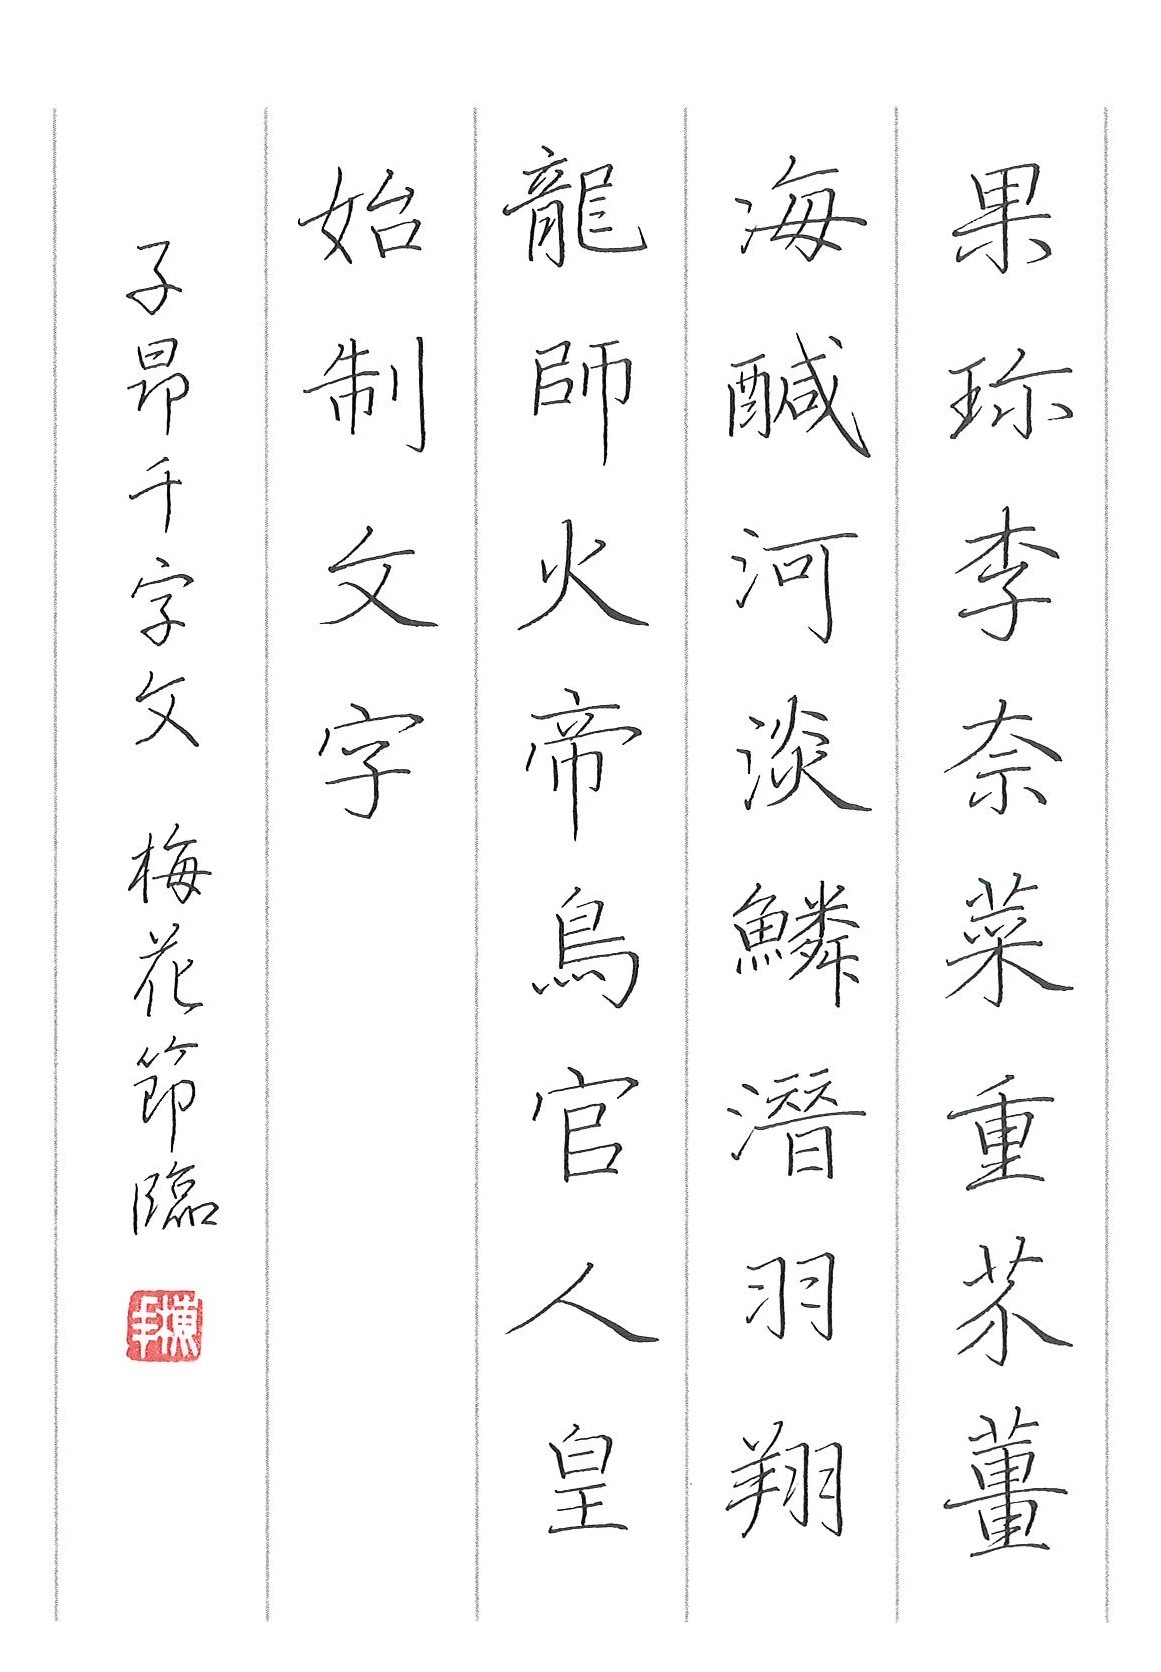 果珎李柰菜重芥薑
海醎河淡鱗潛羽翔
龍師火帝鳥官人皇
始制文字
子昂千字文 梅花節臨